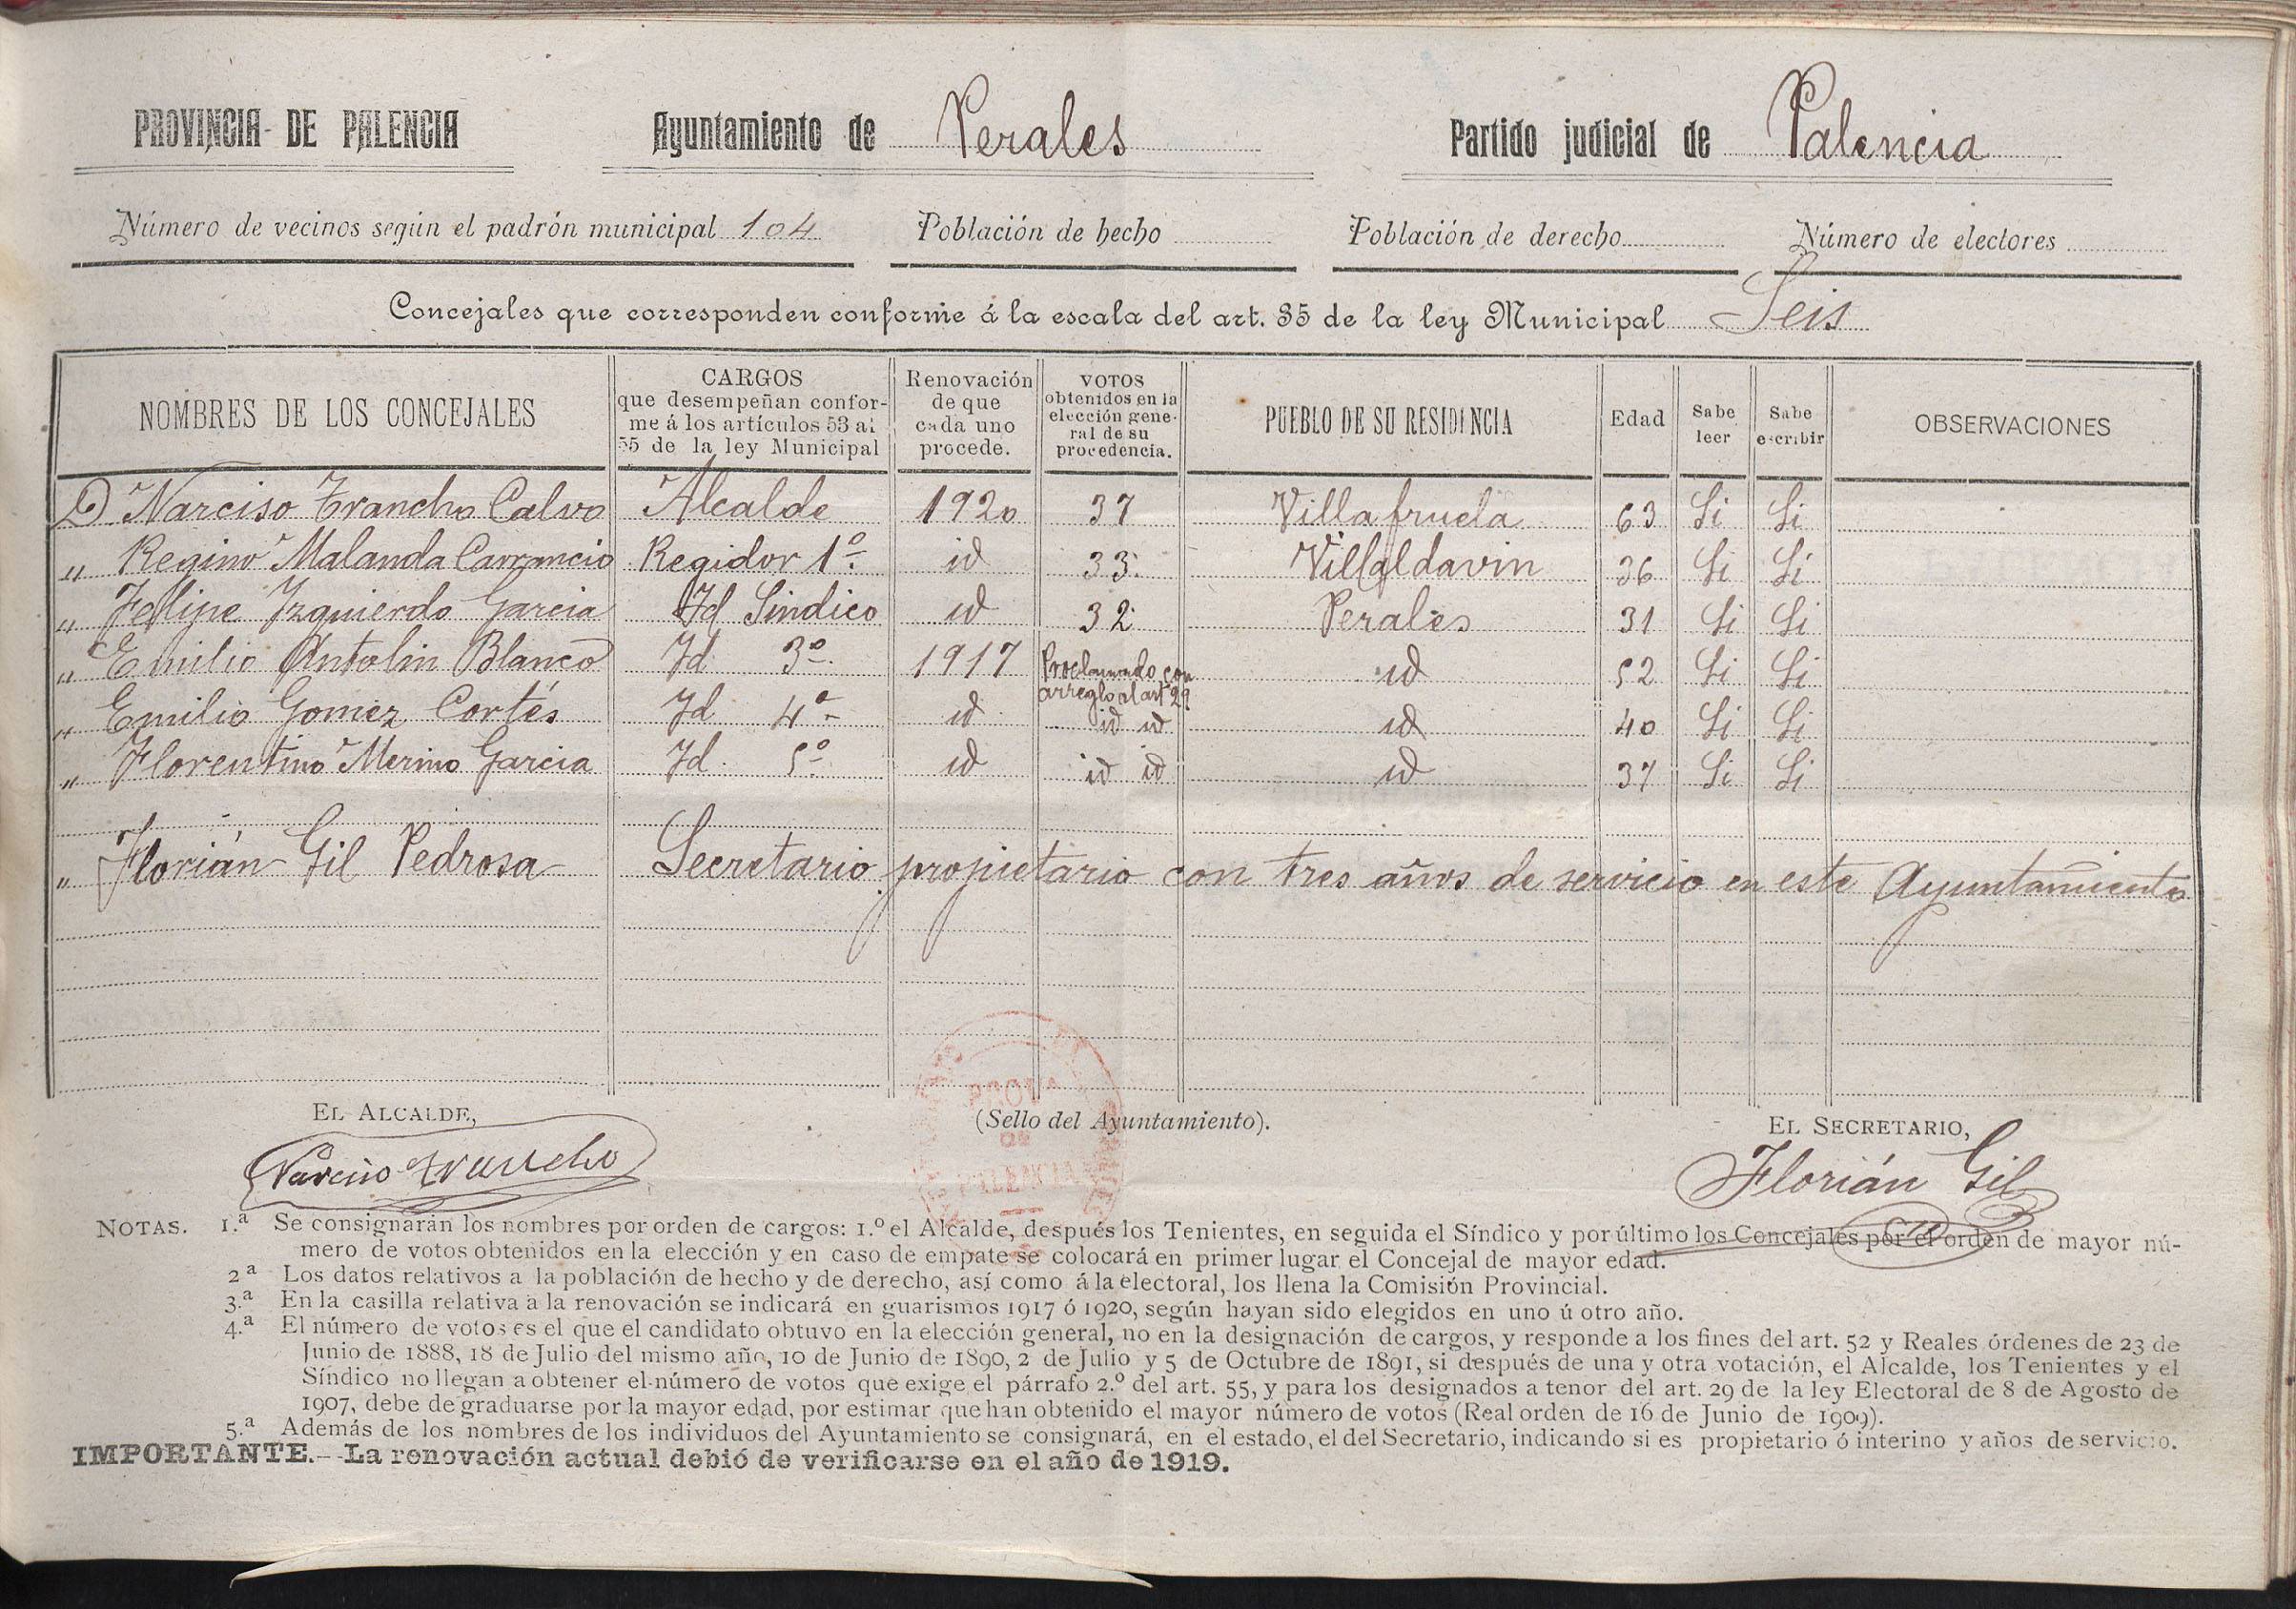 PROVINCIA DE PALENCIA Ayuntamiento de Perales Partido judicial de Palencia
Número de vecinos según el padrón municipal 104 Población de hecho Población de derecho Número de electores
Concejales que corresponden conforme á la escala del art. 35 de la ley Municipal Seis
NOMBRES DE LOS CONCEJALES
CARGOS
que desempeñan confor-
me á los artículos 53 al
55 de la ley Municipal
Renovación
de que
cada uno
procede.
VOTOS
obtenidos en la
elección gene-
ral de su
procedencia.
PUEBLO DE SU RESIDENCIA
Edad
Sabe
leer
Sabe
escribir
OBSERVACIONES
D Narciso Trancho Calvo Alcalde 1920 37 Villafruela 63 Si Si
„ Regino Malanda Carrancio Regidor 1º id 33 Villaldavin 36 Si Si
„ Felipe Izquierdo Garcia Id Sindico id 32 Perales 31 Si Si
„ Emilio Antolin Blanco Id 3º 1917 Proclamado con arreglo al artº 29 id 52 Si Si
„ Emilio Gomez Cortés Id 4º id id id id 40 Si Si
„ Florentino Merino Garcia Id 5º id id id id 37 Si Si
„ Florián Gil Pedrosa Secretario propietario con tres años de servicio en este Ayuntamiento
EL ALCALDE, (Sello del Ayuntamiento). EL SECRETARIO,
Narciso Trancho Florián Gil
PALENCIA
NOTAS. 1.ª Se consignarán los nombres por orden de cargos: 1.º el Alcalde, después los Tenientes, en seguida el Síndico y por último los Concejales por el orden de mayor nú-
mero de votos obtenidos en la elección y en caso de empate se colocará en primer lugar el Concejal de mayor edad.
2ª Los datos relativos a la población de hecho y de derecho, así como á la electoral, los llena la Comisión Provincial.
3.ª En la casilla relativa a la renovación se indicará en guarismos 1917 ó 1920, según hayan sido elegidos en uno ú otro año.
4.ª El número de votos es el que el candidato obtuvo en la elección general, no en la designación de cargos, y responde a los fines del art. 52 y Reales órdenes de 23 de
Junio de 1888, 18 de Julio del mismo año, 10 de Junio de 1890, 2 de Julio y 5 de Octubre de 1891, si después de una y otra votación, el Alcalde, los Tenientes y el
Síndico no llegan a obtener el número de votos que exige el párrafo 2.º del art. 55, y para los designados a tenor del art. 29 de la ley Electoral de 8 de Agosto de
1907, debe de graduarse por la mayor edad, por estimar que han obtenido el mayor número de votos (Real orden de 16 de Junio de 1909).
5.ª Además de los nombres de los individuos del Ayuntamiento se consignará, en el estado, el del Secretario, indicando si es propietario ó interino y años de servicio.
IMPORTANTE.--La renovación actual debió de verificarse en el año de 1919.